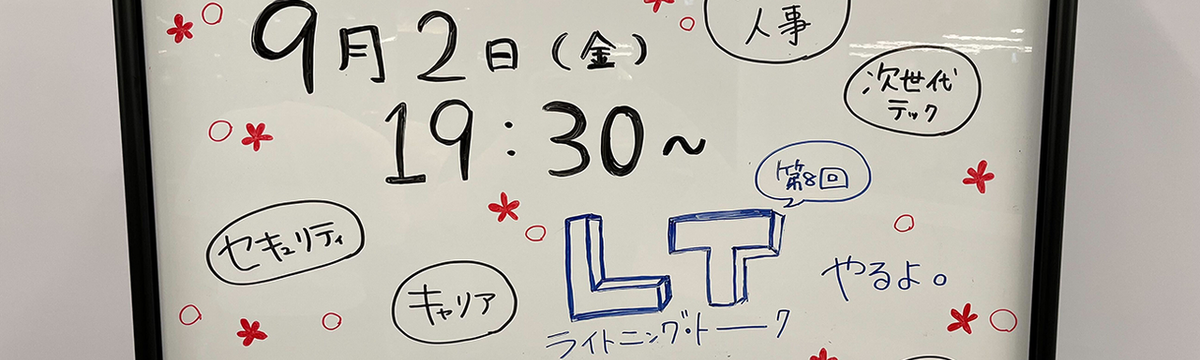 人事
9月2日(金)
次世代
テック
19:30~
第8回
セキュリティ
LT
やるよ。
キャリア
ライトニング・トーク